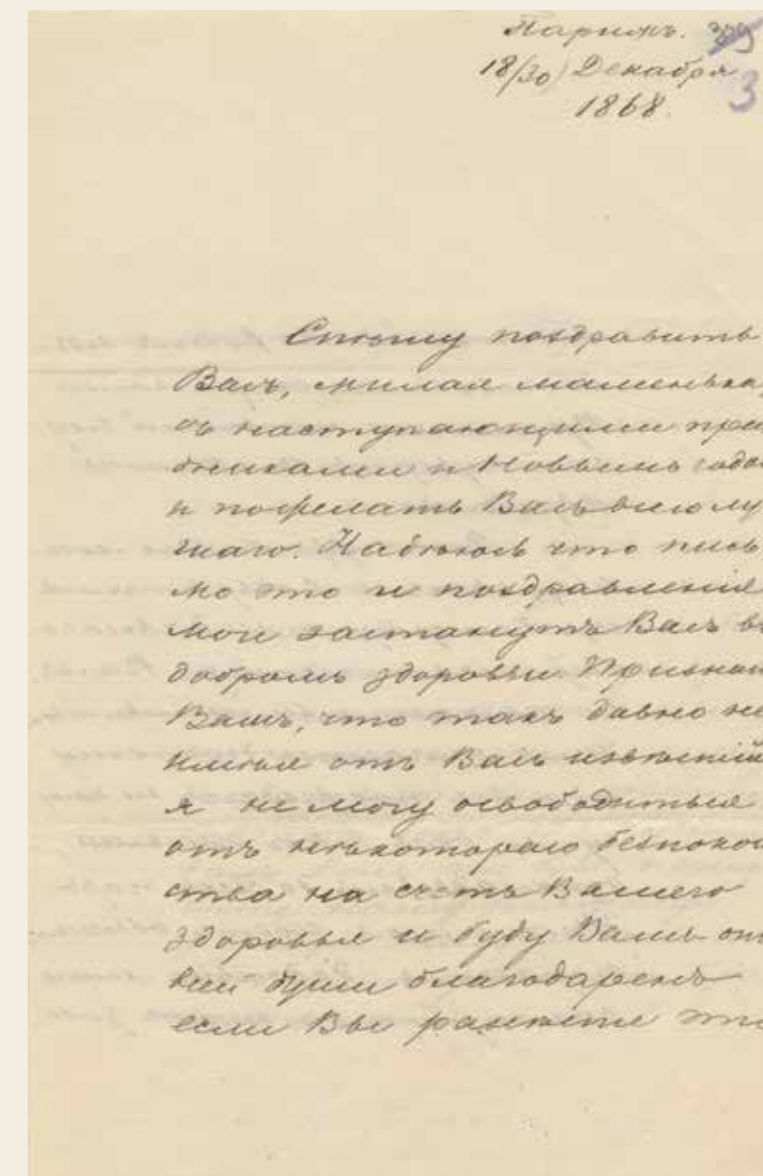 Парижъ. 329
18/30) Декабря 3
1868.
Спѣшу поздравить
Васъ, милая маменька,
съ наступающими праз
дниками и Новымъ годом
и пожелать Вамъ всего лу
чшаго. Надѣюсь что пись
мо это и поздравленія
мои застанутъ Васъ въ
добромъ здоровьи. Признаю
Вамъ, что такъ давно не
имѣя отъ Васъ извѣстій
я не могу освободиться
отъ нѣкотораго безпокой
ства на счетъ Вашего
здоровья и буду Вамъ от
всей души благодаренъ
если Вы разсѣете это